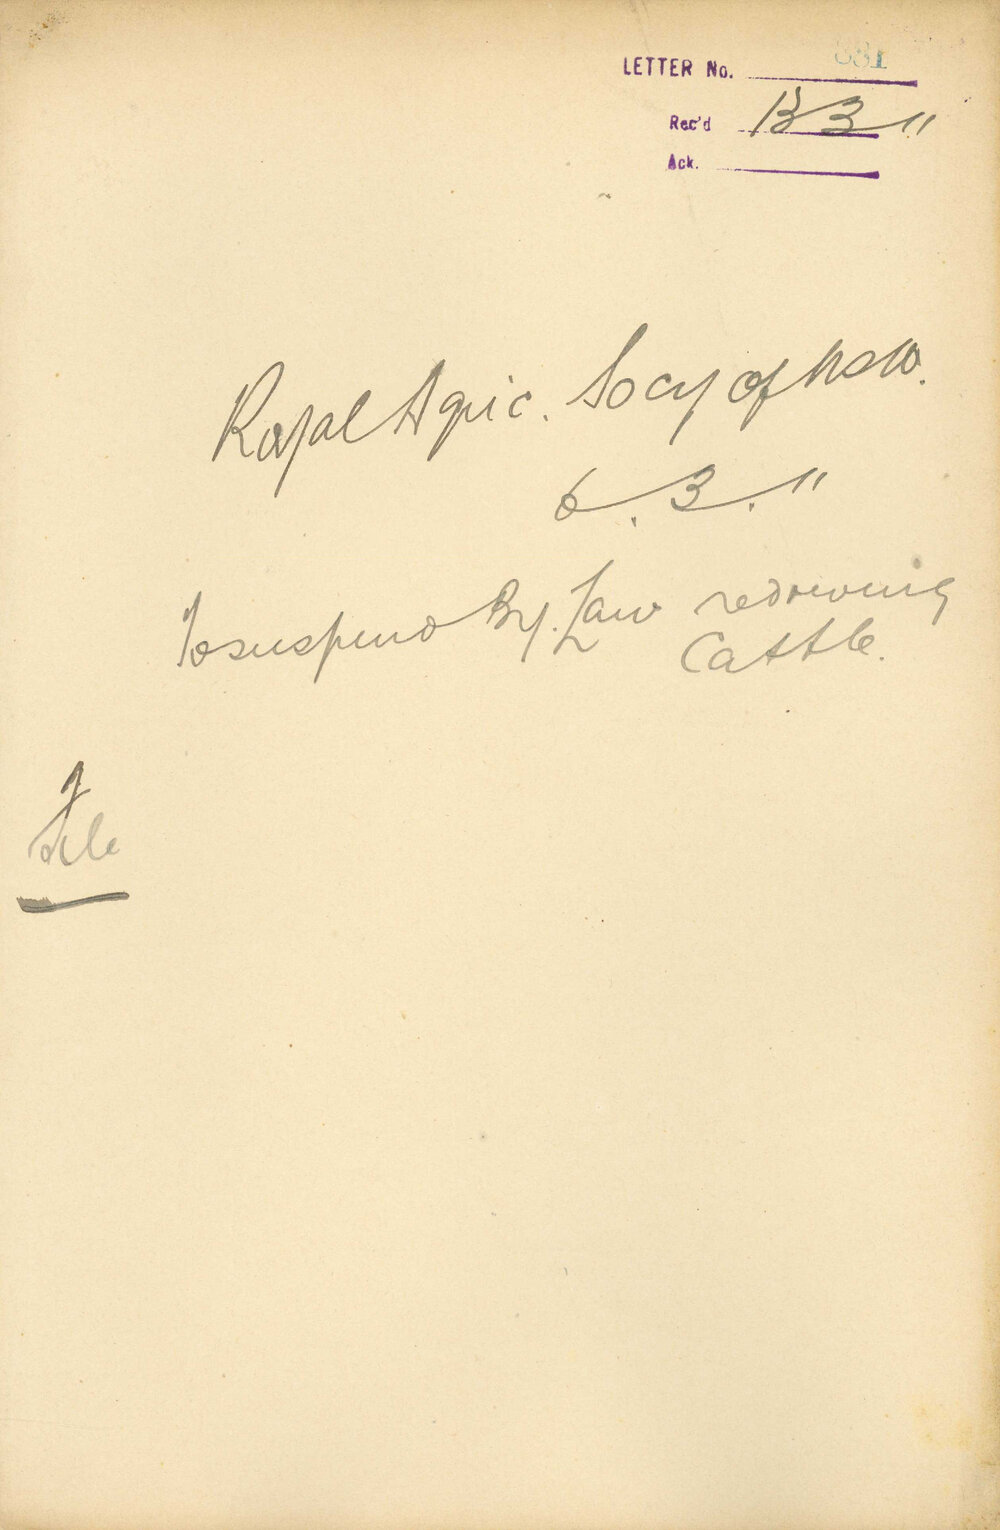 LETTER No. 831
Rec'd 13 3 11
Ack.
Royal Agric. Socy of NSW.
6. 3. 11
To suspend By. Law re driving
Cattle.
File